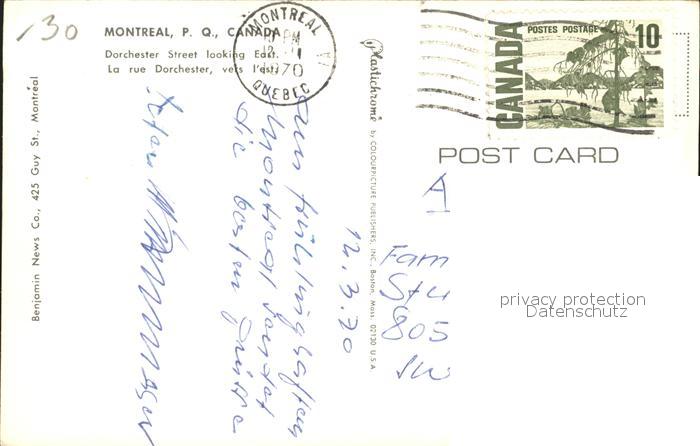 130
MONTREAL, P. Q., CANADA
Dorchester Street looking East.
La rue Dorchester, vers l'est.
MONTREAL
PM
1970
QUEBEC
CANADA
POSTES POSTAGE
10
POST CARD
A
Fam
Stu
805
privacy protection
Datenschutz
Plastichrome by COLOURPICTURE PUBLISHERS, INC., Boston, Mass. 02130 U.S.A.
12.3.70
Aus frühlinghaften
Montreal sendet
die besten Grüsse
Benjamin News Co., 425 Guy St., Montréal